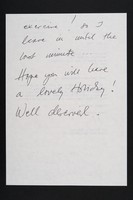 exercise! So I
leave it until the
last minute.
Hope you will have
a lovely Holiday!
Well deserved.